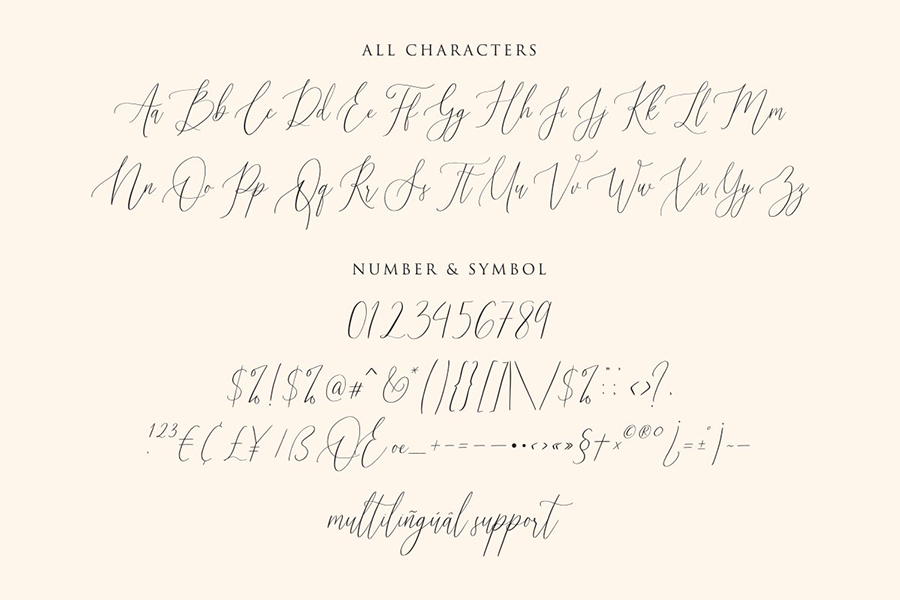 ALL CHARACTERS
Aa Bb Cc Dd Ee Ff Gg Hh Ii Jj Kk Ll Mm
Nn Oo Pp Qq Rr Ss Tt Uu Vv Ww Xx Yy Zz
NUMBER & SYMBOL
0123456789
$%!$%@#^&*(){}[]|\/$%:;<>?.
¹²³€¢£¥|ßŒœ_+-=——••‹›«»§†×©®º¿=±°¡~—
multiliñgúâl support